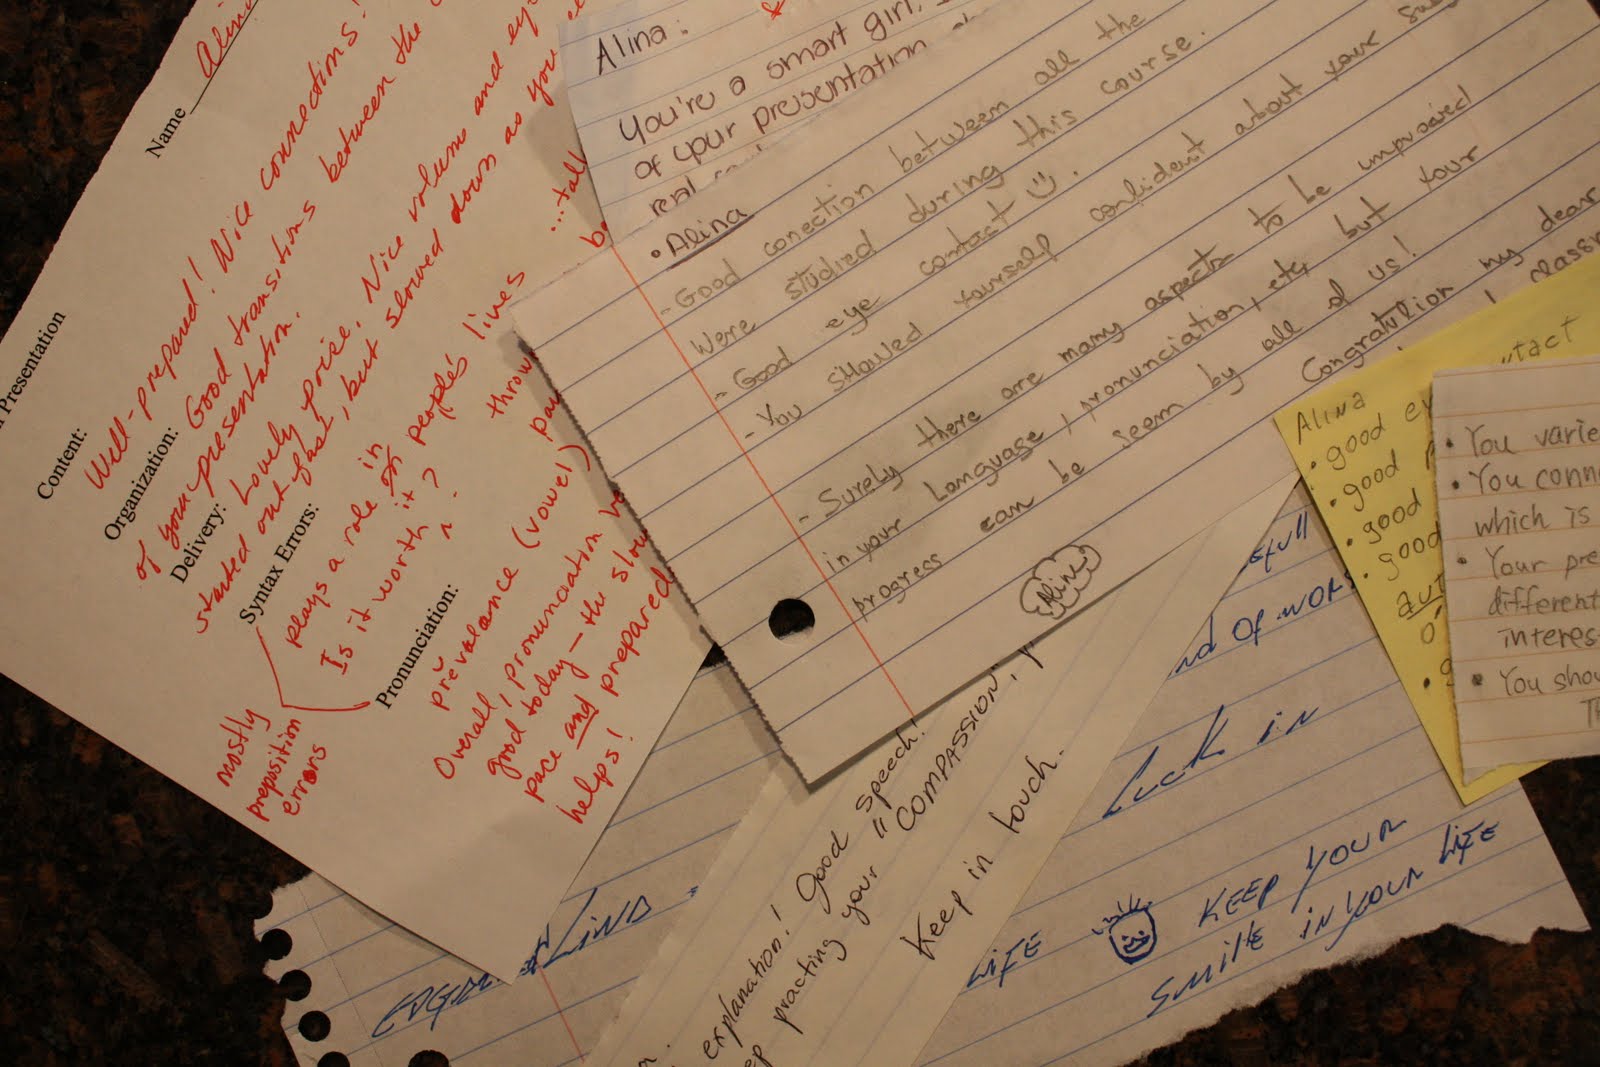 Name Alina
Presentation
Content:
Well-prepared! Nice connections!
Organization: Good transitions between the
of your presentation.
Delivery: Lovely poise. Nice volume and eye
started out fast, but slowed down as you
Syntax Errors:
plays a role in people's lives
Is it worth it?
mostly
preposition
errors
Pronunciation:
prevalence (vowel)
Overall, pronunciation
good today - the slow
pace and prepared
helps!
...tall
throw
Alina:
You're a smart girl.
of your presentation
real
• Alina
- Good conection between all the
were studied during this course.
- Good eye contact
- You showed yourself confident about your
- Surely there are many aspects to be improved
in your language, pronunciation, etc, but your
progress can be seem by all of us!
Congratulion my dear
Aline
Alina
• good ey
• good
• good
• good
tact
• You varie
• You conn
which is
• Your pre
different
interes
• You shou
explanation! Good speech!
practing your "COMPASSION",
Keep in touch.
nd of work
Luck in
LIFE
KEEP YOUR
SMILE IN YOUR LIFE